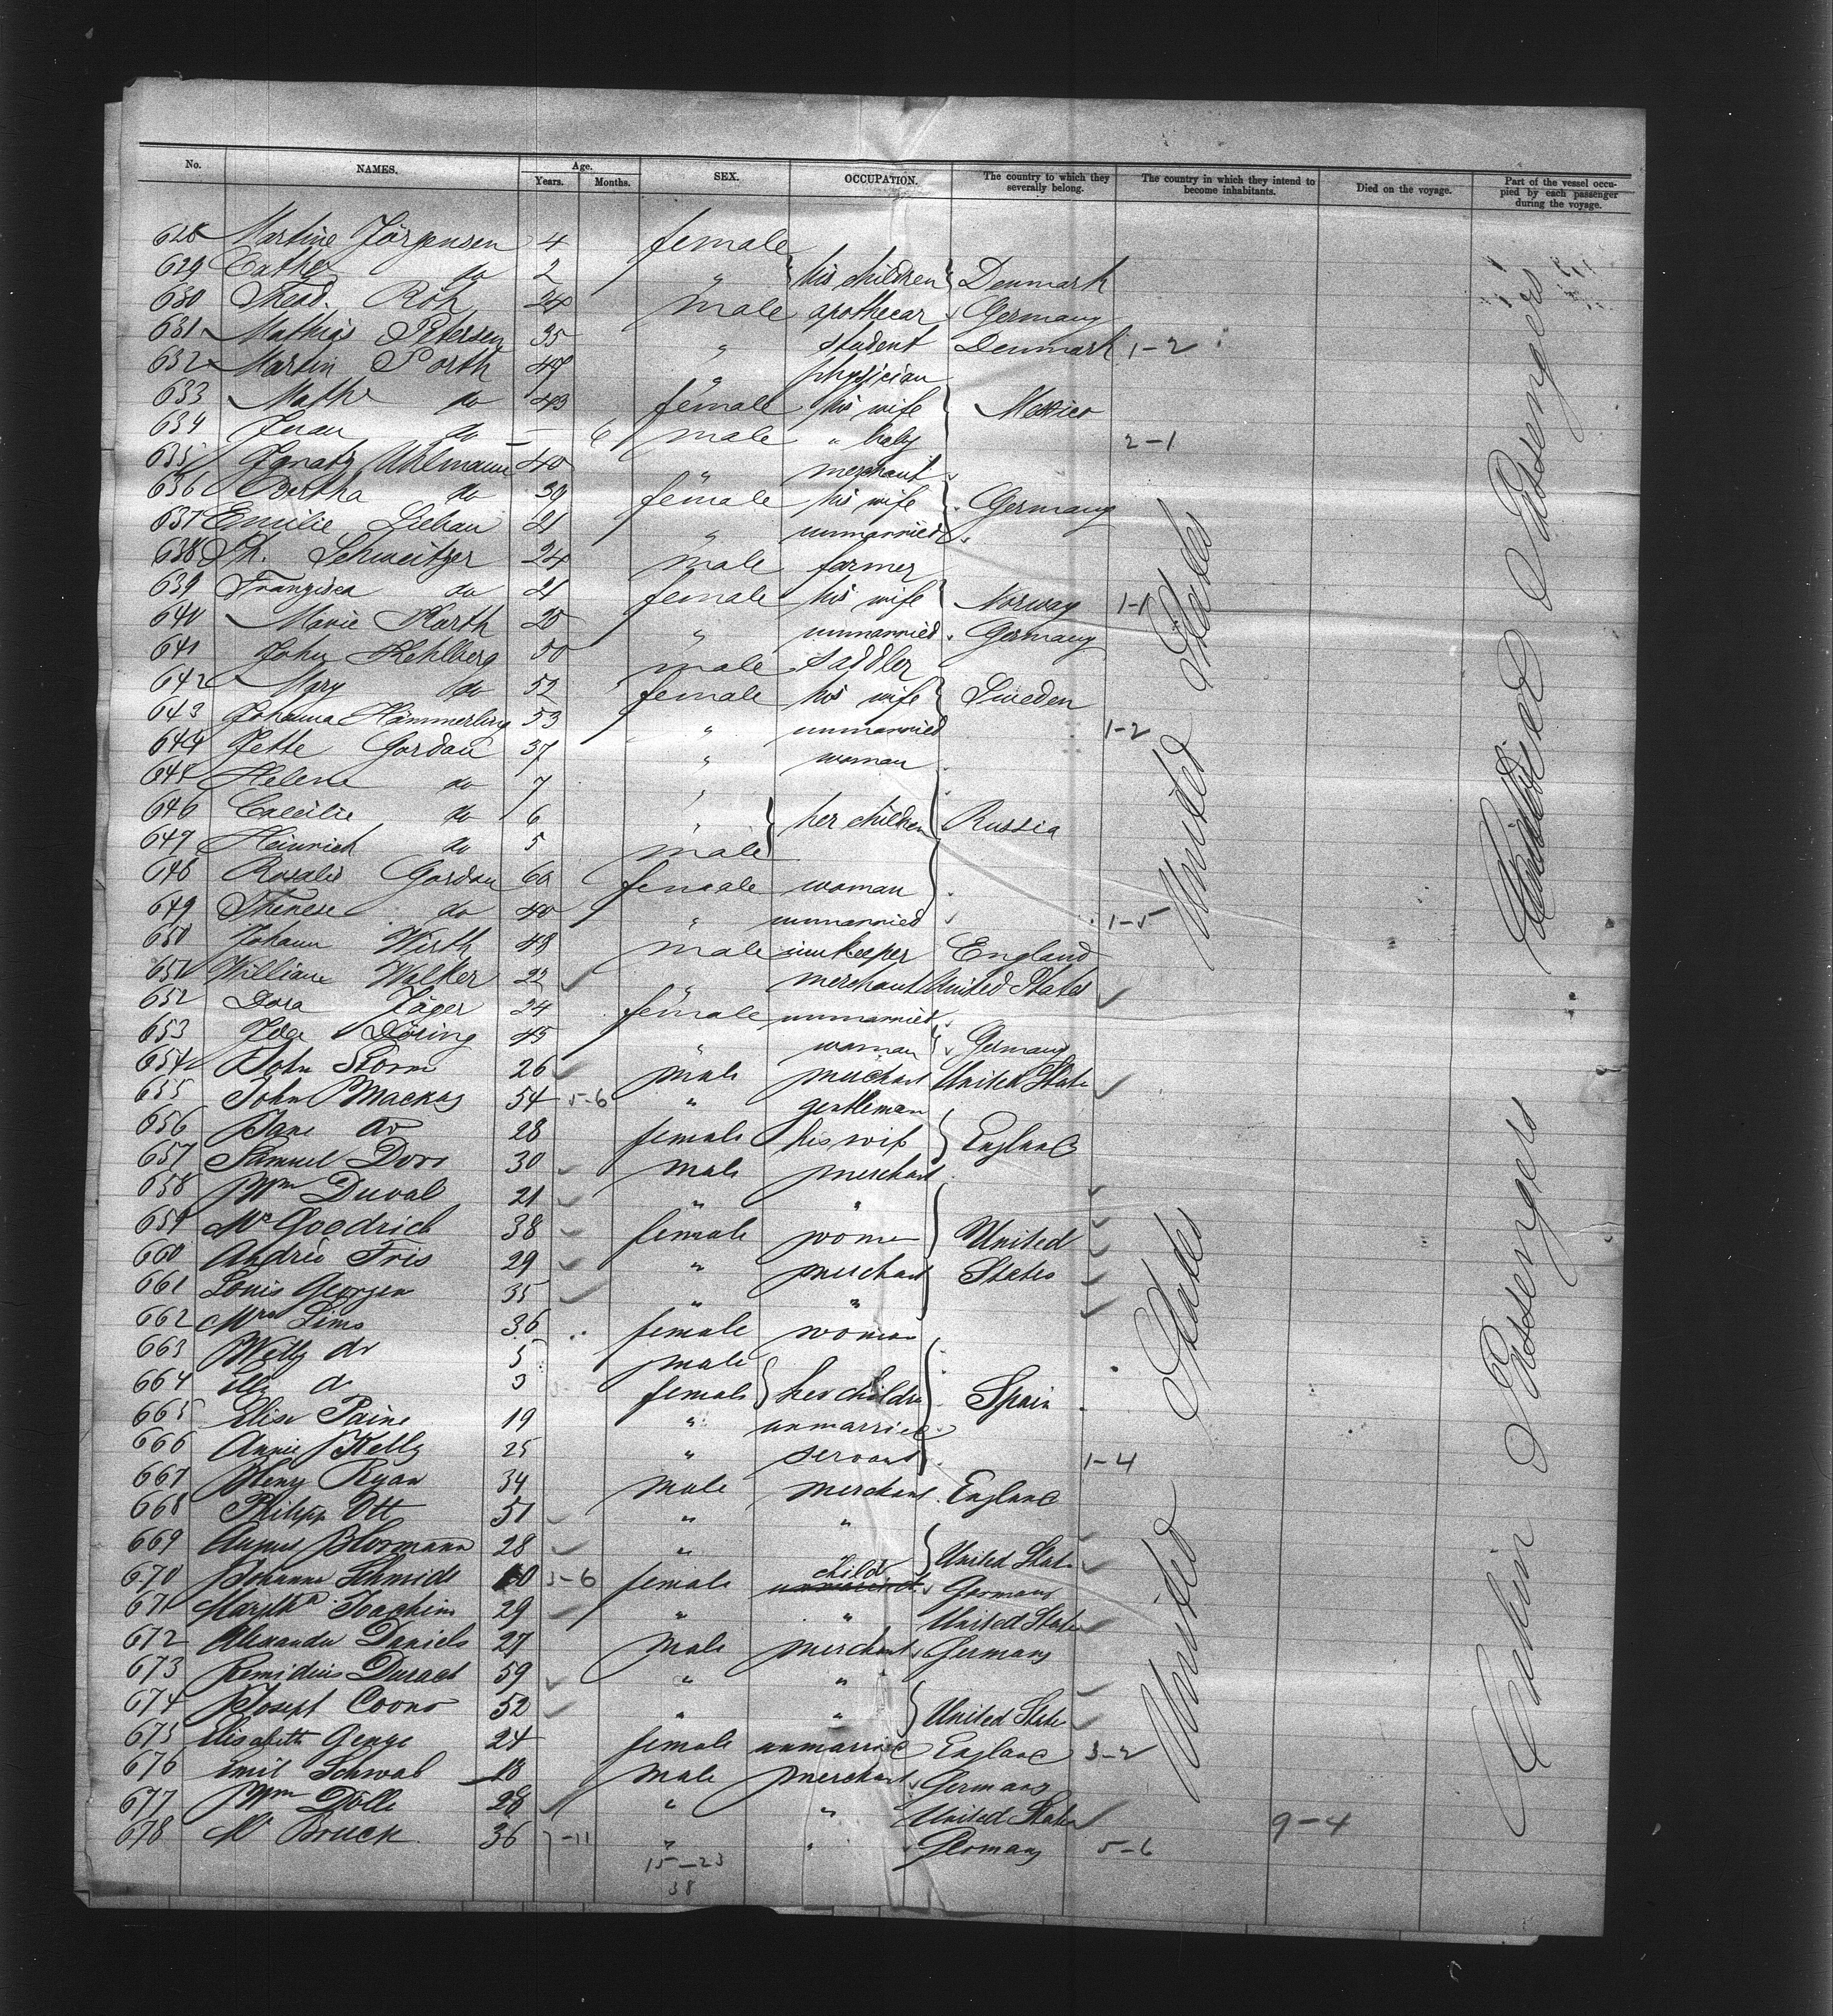 No. NAMES. Age. Years. Months. SEX. OCCUPATION. The country to which they severally belong. The country in which they intend to become inhabitants. Died on the voyage. Part of the vessel occupied by each passenger during the voyage.
628 Martine Jörgensen 4 female
629 Cathe do 2 " his children Denmark
630 Theod. Röh 24 male apothecar Germany
631 Mathias Petersen 35 " student Denmark 1-2
632 Martin Porth 47 " physician
633 Mathe do 43 female his wife Mexico
634 Juan do — 6 male " baby 2-1
635 Ignatz Uhlmann 40 " merchant
636 Bertha do 30 female his wife Germany
637 Emilie Liebau 21 " unmarried
638 Ph. Schweitzer 24 male farmer
639 Franzisca do 21 female his wife Norway 1-1
640 Marie Karth 25 " unmarried Germany
641 John Kehlberg 50 male saddler
642 Mary do 52 female his wife Sweden
643 Johanna Hämmerling 53 " unmarried 1-2
644 Jette Gordau 37 " woman
645 Helene do 7 "
646 Caecilie do 6 " her children Russia
647 Heinrich do 5 male
648 Rosalie Gordau 60 female woman
649 Therese do 40 " unmarried 1-5
650 Johann Wirth 48 male innkeeper England
651 William Walker 22 " merchant United States
652 Dora Jäger 24 female unmarried
653 Ida Döring 45 " woman Germany
654 John Storm 26 male merchant United State
655 John Mackay 54 5-6 " gentleman
656 Jane do 28 female his wife England
657 Samuel Dorr 30 male merchant
658 Wm Duval 21 " "
659 Mrs Goodrich 38 female woman United
660 Andrée Fris 29 " merchant States
661 Louis Georgen 35 " "
662 Mrs Lims 36 female woman
663 Willy do 5 male
664 do 3 female her children Spain
665 Elise Paine 19 " unmarried
666 Annie Kelly 25 " servant 1-4
667 Henry Ryan 34 male merchant England
668 Philipp Ott 51 " "
669 August Hormann 28 " United State
670 Johanna Schmidt 10 3-6 female child Germany
671 Martha Joachim 29 " " United State
672 Alexander Daniels 27 male merchant Germany
673 Remidius Durach 59 " "
674 Joseph Coons 52 " " United State
675 Elisabeth Genge 24 female unmarried England 3-2
676 Emil Schwab 18 male merchant Germany
677 Wm Dölle 28 " " United State 9-4
678 Mr Bruck 36 7-11 " " Germany 5-6
15-23
38
United States
United States
Cabin Passengers
Passengers